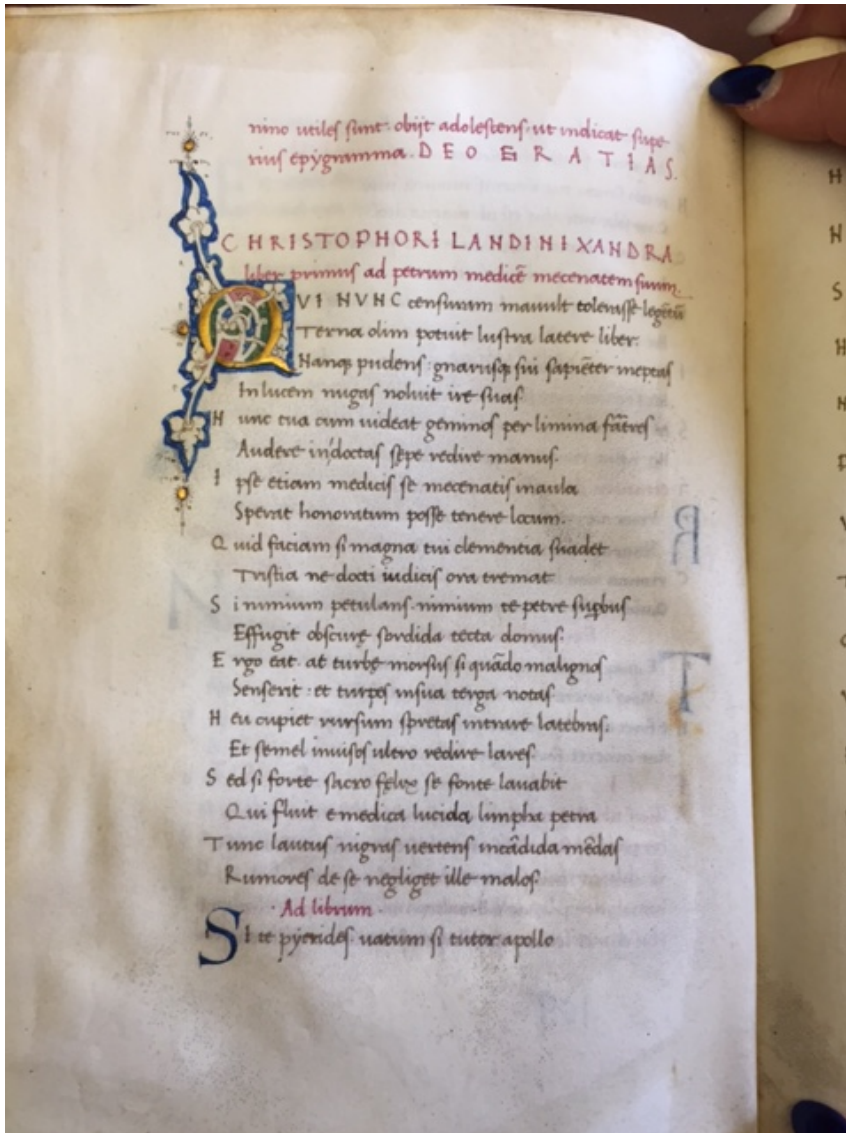 nino utiles sunt. obijt adolescens. ut indicat supe
rius epygramma. DEO GRATIAS.
CHRISTOPHORI LANDINI XANDRA
liber primus ad petrum medicē mecenatem suum.
QVI NVNC censuram mauult tolerasse legētū
Terna olim potuit lustra latere liber:
Nanq; pudens: gnarusq; sui sapiēter ineptas
In lucem nugas noluit ire suas.
Nunc tua cum uideat geminos per limina fātres
Audere indoctas sępe redire manus.
Ipse etiam medicis se mecenatis inaula
Sperat honoratum posse tenere locum.
Quid faciam si magna tui clementia suadet
Tristia ne docti iudicis ora tremat
Si nimium petulans. nimium te petre suꝑbus
Effugit obscurę sordida tecta domus.
Ergo eat. at turbę morsus si quādo malignos
Senserit: et turpes insua terga notas
Heu cupiet rursum spretas intrare latebras.
Et semel inuisos ultro redire lares.
Sed si forte sacro fęlix se fonte lauabit
Qui fluit e medica lucida limpha petra
Tunc lautus nigras uertens incādida mēdas
Rumores de se negliget ille malos.
Ad librum.
SI te pÿerides. uatum si tutor apollo
H
N
S
N